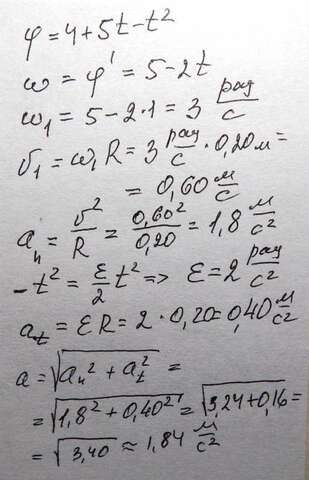 φ = 4 + 5t - t²
ω = φ' = 5 - 2t
ω₁ = 5 - 2·1 = 3 рад/с
υ₁ = ω₁R = 3 рад/с · 0,20 м =
= 0,60 м/с
aₙ = υ²/R = 0,60²/0,20 = 1,8 м/с²
-t² = ε/2 t² => ε = 2 рад/с²
aₜ = εR = 2 · 0,20 = 0,40 м/с²
a = √(aₙ² + aₜ²) =
= √(1,8² + 0,40²) = √(3,24 + 0,16) =
= √3,40 ≈ 1,84 м/с²